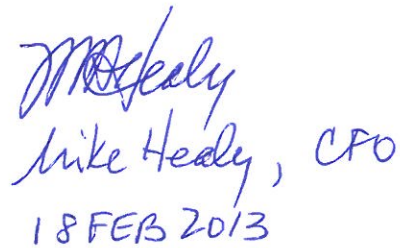 MHealy
Mike Healy, CFO
18 FEB 2013